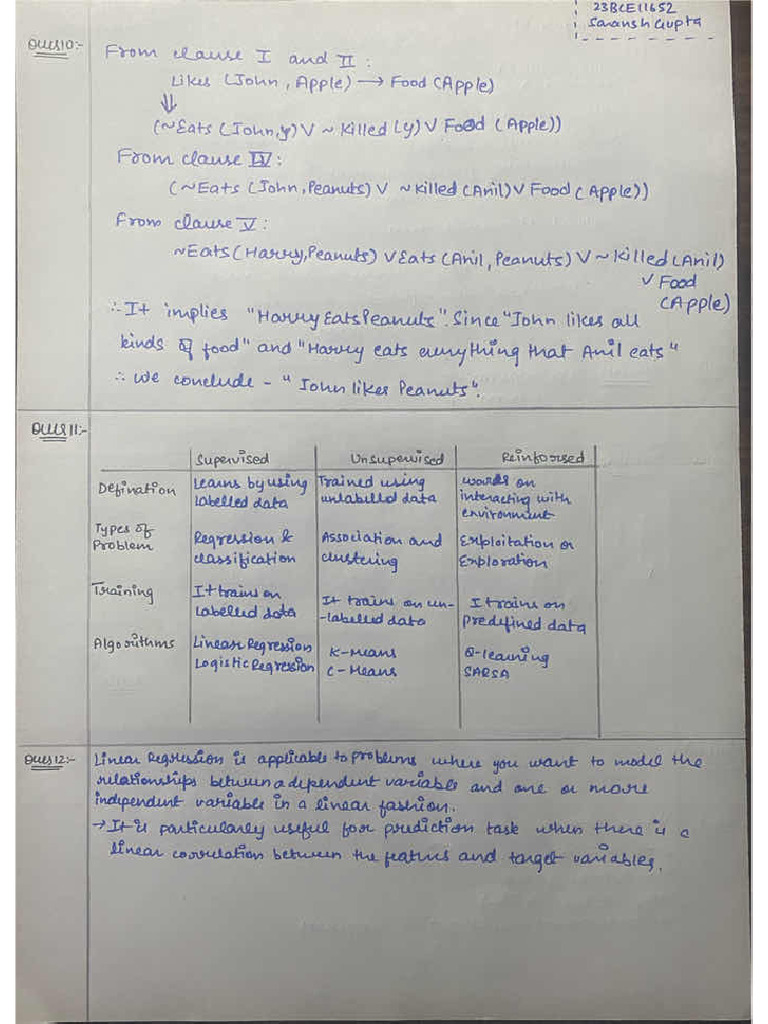 23BCE11652
Saransh Gupta
Ques10:-
From clause I and II :
Likes (John, Apple) → Food (Apple)
⇓
(~Eats (John,y) V ~ Killed (y) V Food (Apple))
From clause IV :
(~Eats (John, Peanuts) V ~Killed (Anil) V Food (Apple))
From clause V :
~Eats (Harry, Peanuts) V Eats (Anil, Peanuts) V ~ Killed (Anil)
V Food
(Apple)
∴ It implies "Harry Eats Peanuts". Since "John likes all
kinds of food" and "Harry eats everything that Anil eats"
∴ We conclude - "John likes Peanuts".
Ques 11:-
Supervised Unsupervised Reinforsed
Defination Learns by using Trained using words on
labelled data unlabelled data interacting with
environment
Types of
Problem Regression & Association and Exploitation or
classification clustering Exploration
Training It trains on It trains on un- It trains on
labelled data -labelled data predefined data
Algorithms Linear Regression K-Means Q-learning
Logistic Regression C-Means SARSA
Ques 12:- Linear Regression is applicable to problems where you want to model the
relationships between a dependent variable and one or more
independent variable in a linear fashion.
→ It is particularly useful for prediction task when there is a
linear correlation between the features and target variables.